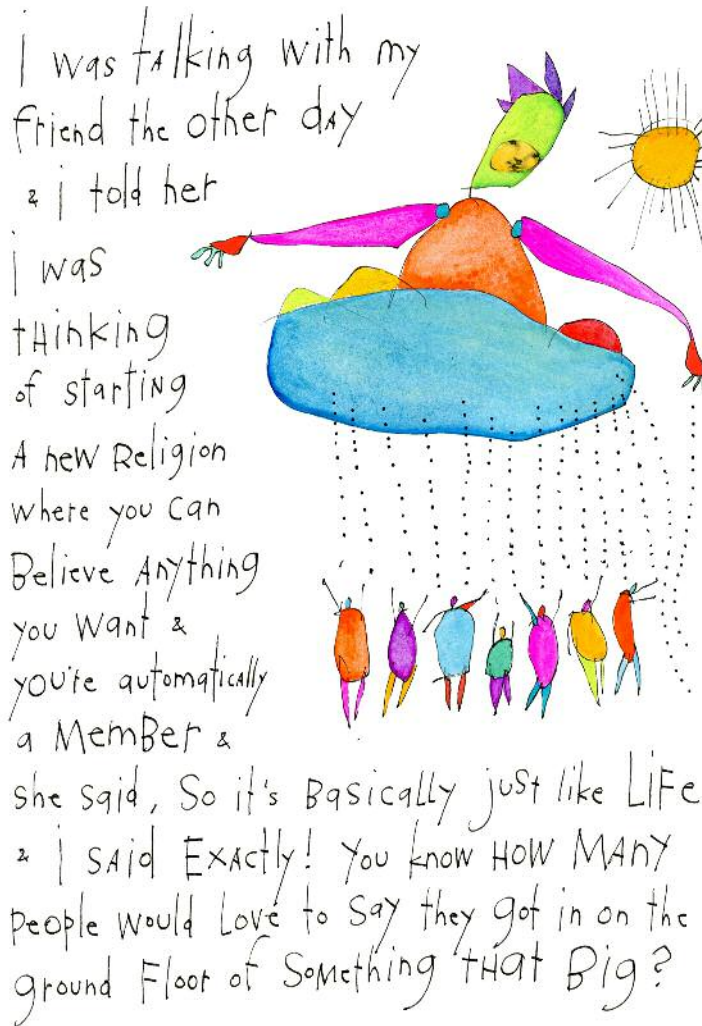 i was tAlking with my
friend the other dAy
& i told her
i was
tHinking
of starting
A new Religion
where you can
Believe Anything
you Want &
you're automaticAlly
a MemBer &
she said, So it's BasicAlly just like LiFe
& i SAid ExActly! You know HOW MANy
people would Love to Say they got in on the
ground Floor of SoMething tHAt Big?